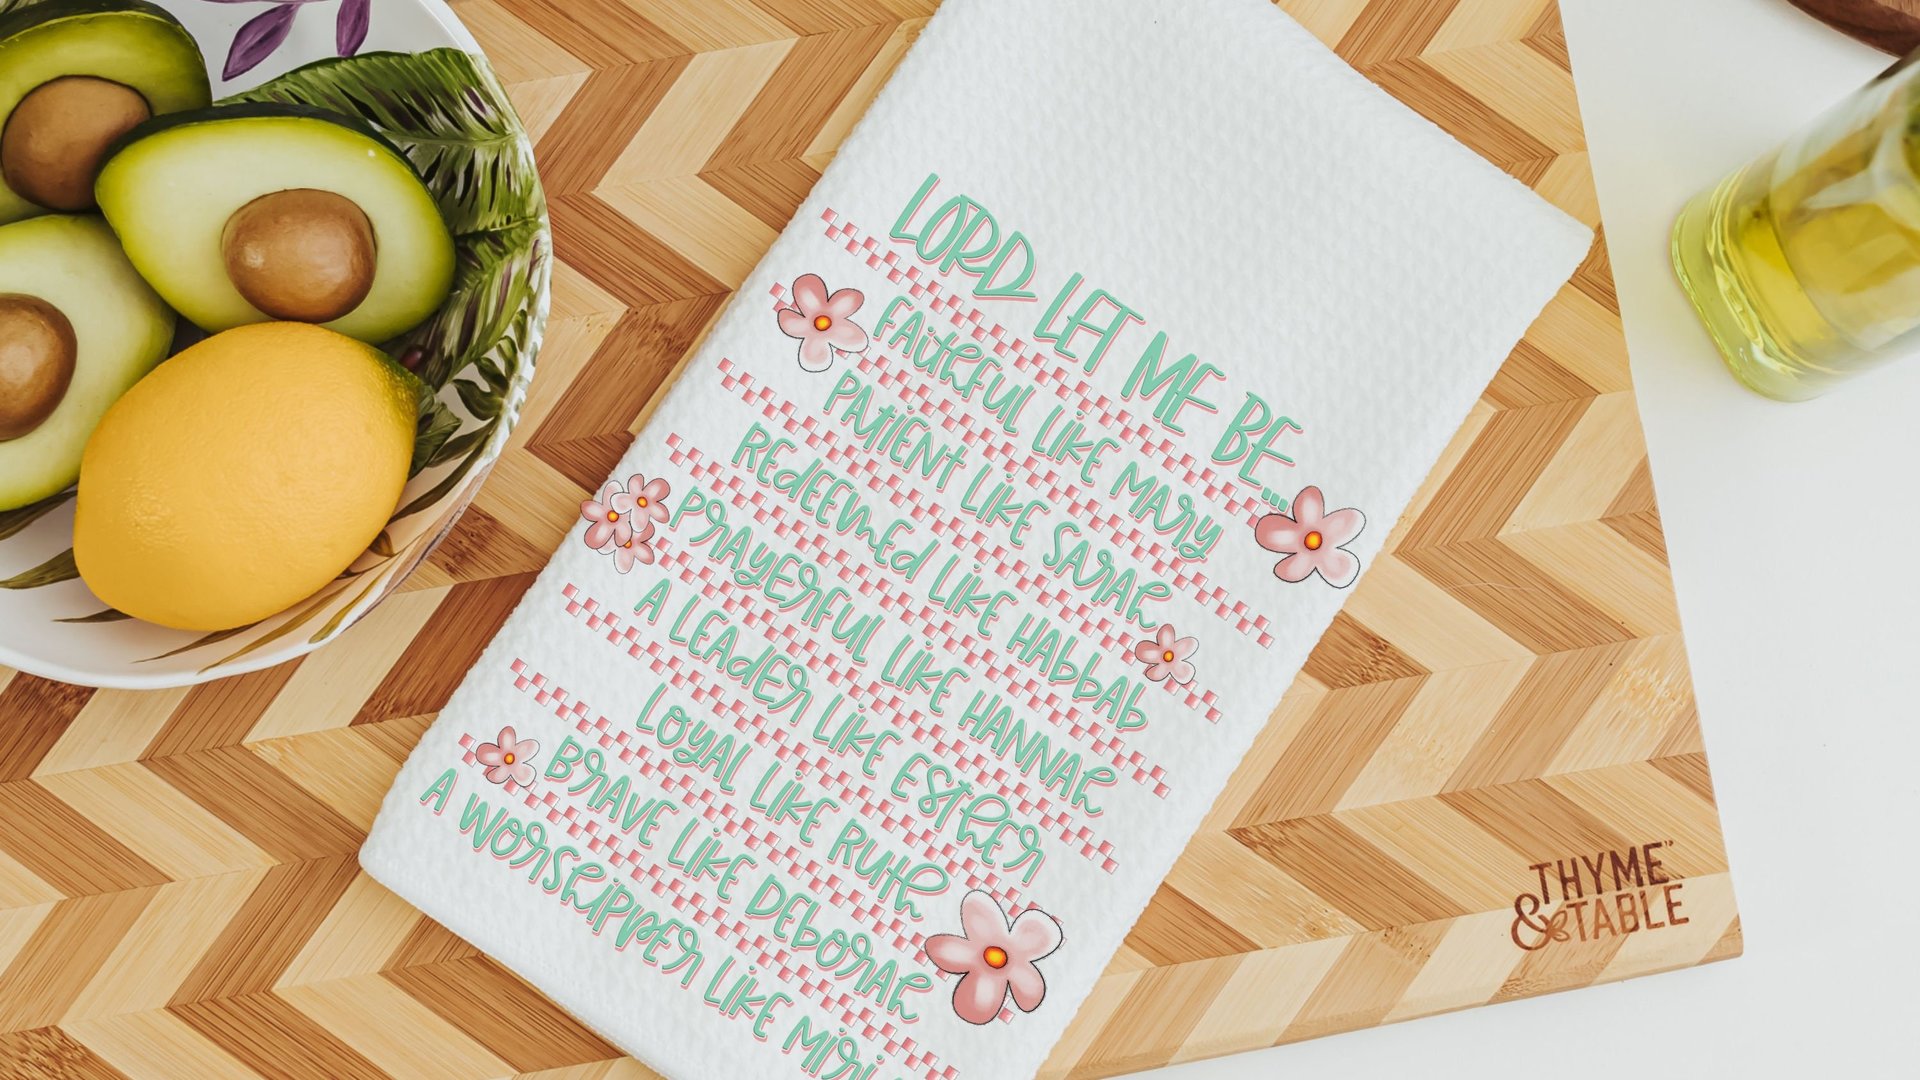 LORD LET ME BE...
FAITHFUL LIKE MARY
PATIENT LIKE SARAH
REDEEMED LIKE HABBAB
PRAYERFUL LIKE HANNAH
A LEADER LIKE ESTHER
LOYAL LIKE RUTH
BRAVE LIKE DEBORAH
A WORSHIPPER LIKE MIRI
THYME
& TABLE